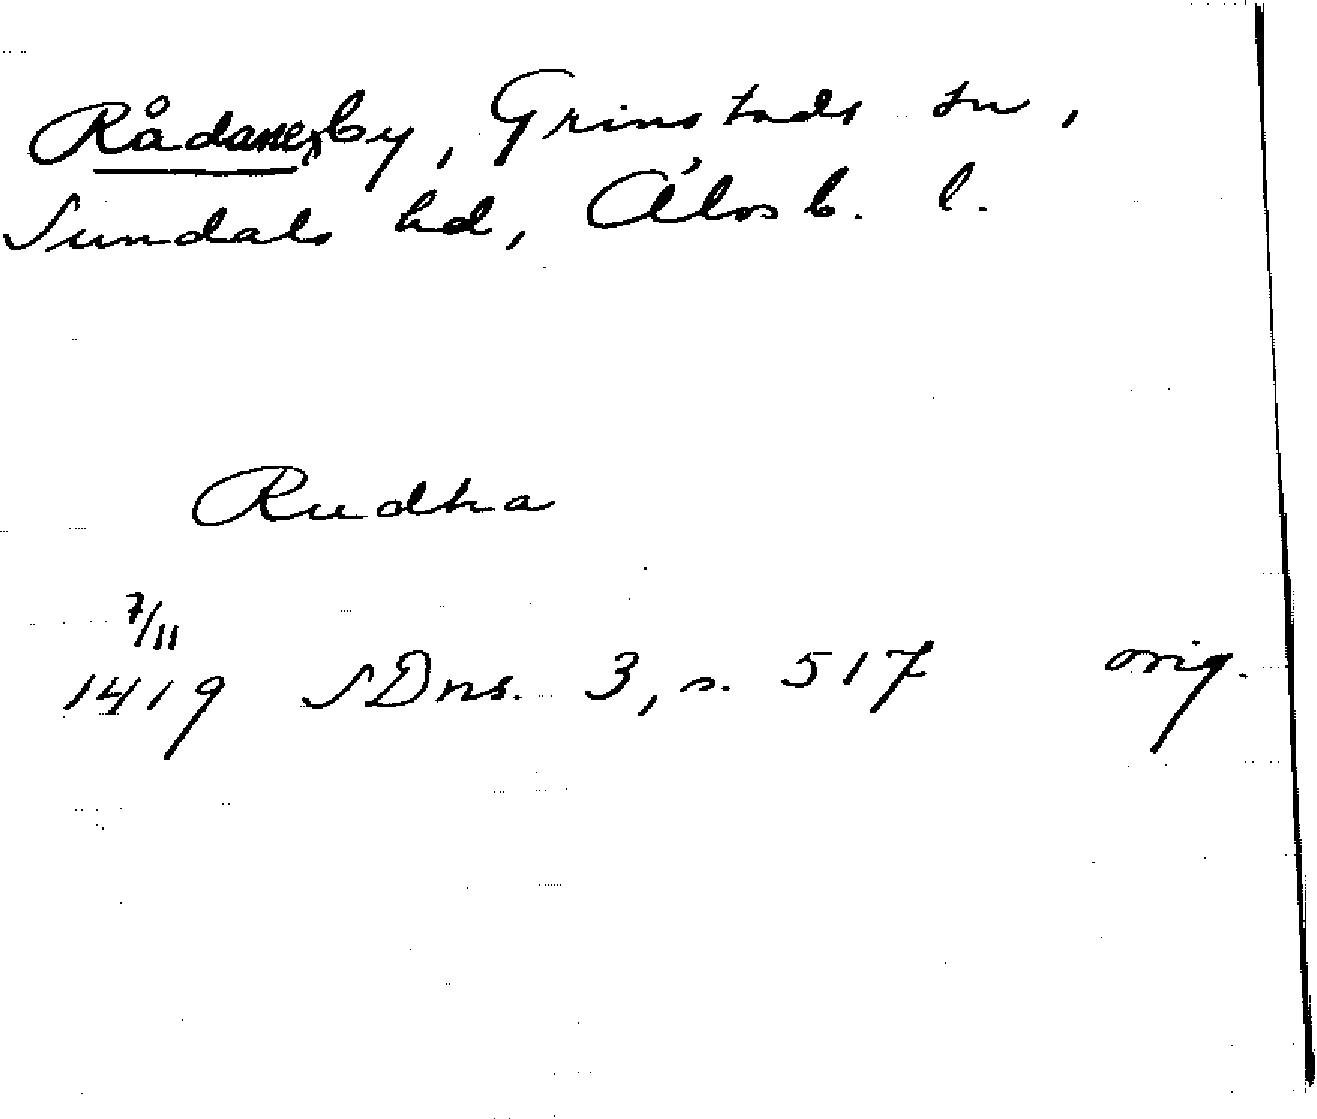 Rådanesby, Grinstads sn,
Sundals hd, Älvsb. l.
Rudha
7/11
1419 SDns. 3, s. 517 orig.